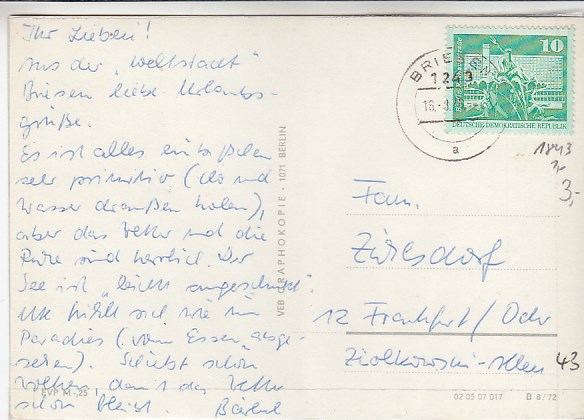 Ihr Lieben!
Aus der "Weltstadt"
Briesen liebe Urlaubs-
grüße.
Es ist alles ein bißchen
sehr primitiv (Clo und
Wasser draußen holen),
aber das Wetter und die
Ruhe sind herrlich. Der
See ist "leicht angeschmutzt".
Ute fühlt sich wie im
Paradies (vom Essen abge-
sehen). Schiebt schon
Wolken, damit das Wetter
schön bleibt. Bärbel
EVP M -,25
VEB GRAPHOKOPIE · 1071 BERLIN
BRIESEN
1243
16.
a
10
DEUTSCHE DEMOKRATISCHE REPUBLIK
1843
3,-
Fam.
Zülsdorf
12 Frankfurt/Oder
Ziolkowski-Allee 43
02 05 07 017 B 8/72